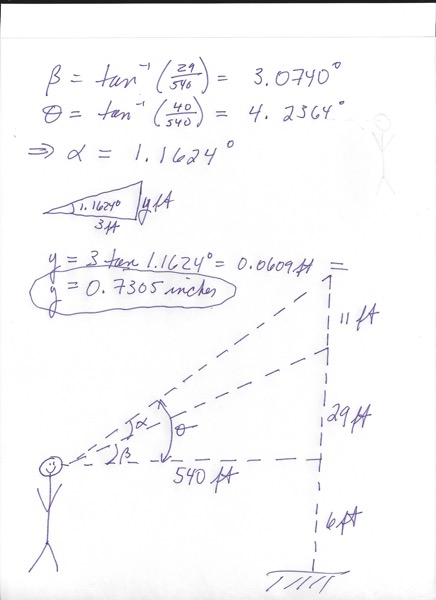 β = tan⁻¹ (29/540) = 3.0740°
θ = tan⁻¹ (40/540) = 4.2364°
⇒ α = 1.1624°
1.1624° y ft
3 ft
y = 3 tan 1.1624° = 0.0609 ft =
y = 0.7305 inches
11 ft
α
θ
29 ft
β
540 ft
6 ft